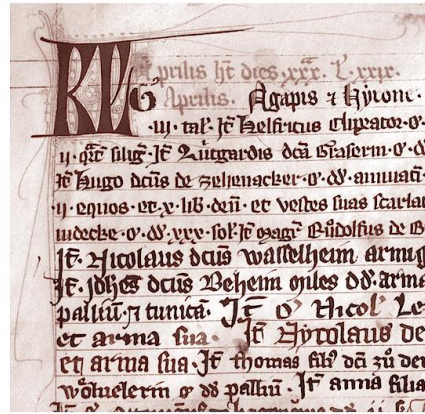 KL Aprilis h̄t dies .xxx. L. xxix.
G Aprilis. Agapis ⁊ Hyrone.
.iij. tal'. It̄ Helfricus Clipeator. o.
ij. qrt̄ siliḡ. It̄ Lutgardis dc̄a Graserin. o. dd'
It̄ Hugo dc̄us de zehenacker. o. dd' annuatī
.ij. equos. et. x. lib. den̄. et vestes suas scarla
indecke. o. dd'. xxx. sol'. It̄ magr̄ Rudolfus de
It̄. Nicolaus dc̄us wasselheim armig
It̄. joh̄es dc̄us Beheim miles dd'. arma
palliū. ⁊ tunicā. It̄ o Nicol' Le
et arma sua. It̄ Nycolaus de
et arma sua. It̄ thomas fili' dc̄i zů der
wöluelerin o dd' palliū. It̄ anna filia